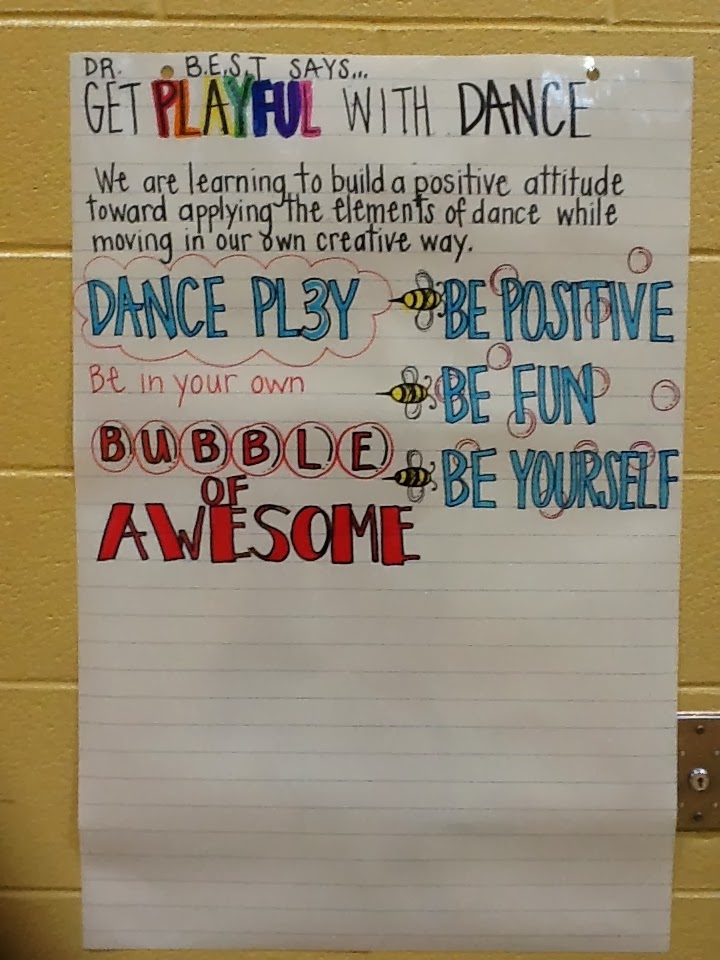 DR. B.E.S.T SAYS...
GET PLAYFUL WITH DANCE
We are learning to build a positive attitude
toward applying the elements of dance while
moving in our own creative way.
DANCE PL3Y
Be in your own
BUBBLE
OF
AWESOME
BE POSITIVE
BE FUN
BE YOURSELF